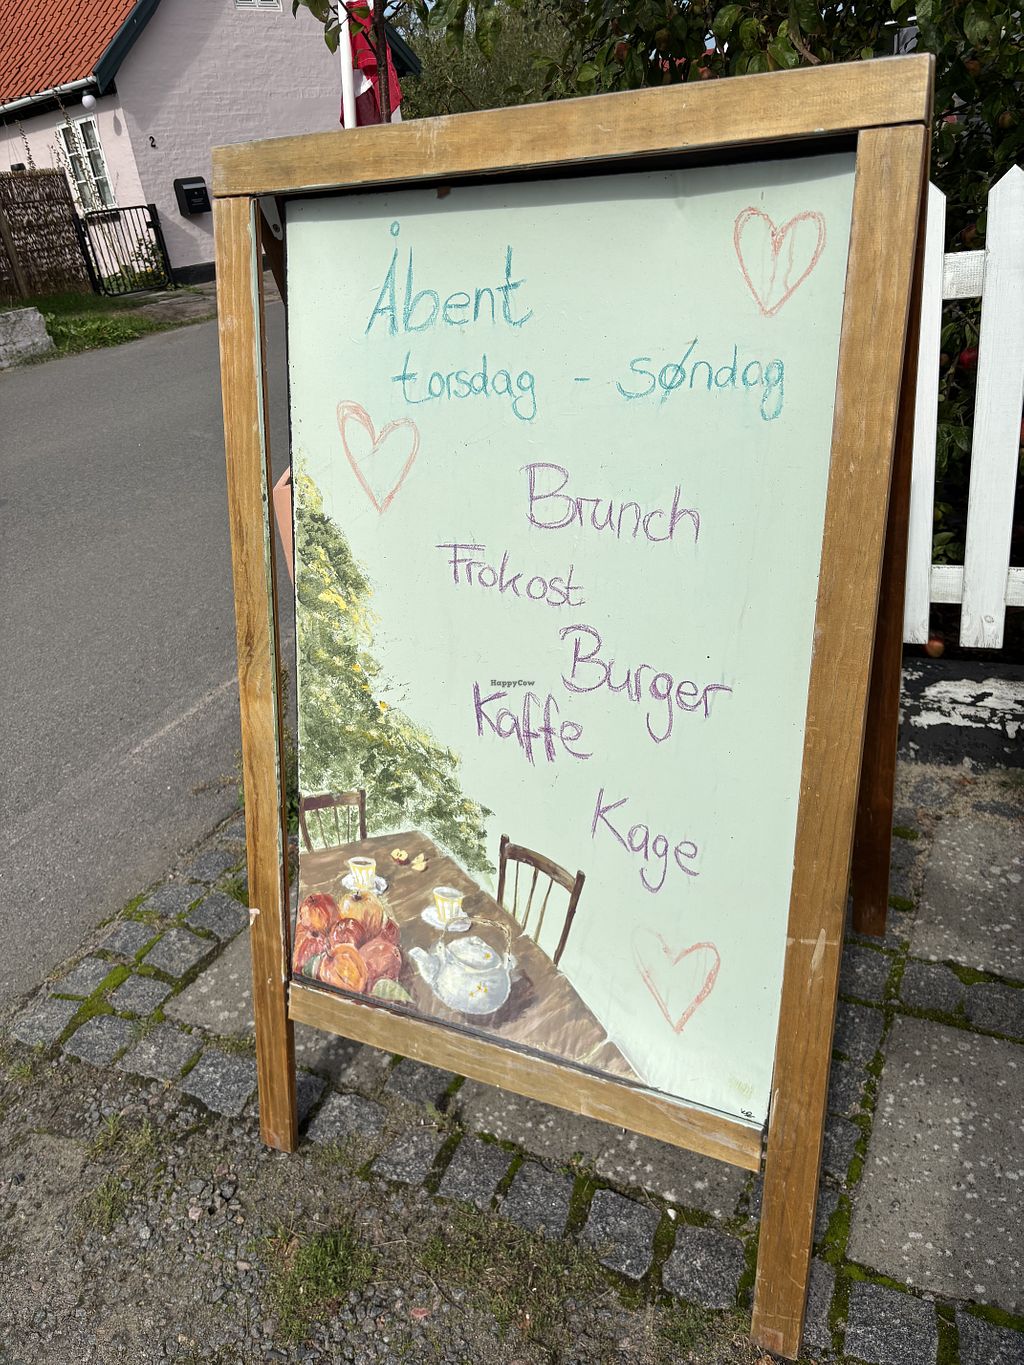 2
Åbent
torsdag - søndag
Brunch
Frokost
Burger
Kaffe
Kage
HappyCow